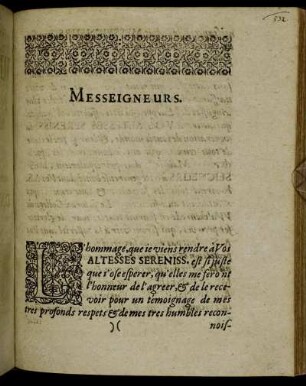 MESSEIGNEURS.
L'hommage, que ie viens rendre à Vos
ALTESSES SERENISS. est si juste
que i'ose esperer, qu'elles me feront
l'honneur de l'agreer, & de le rece-
voir pour un témoignage de mes
tres profonds respets & de mes tres humbles recon-
)( nois-